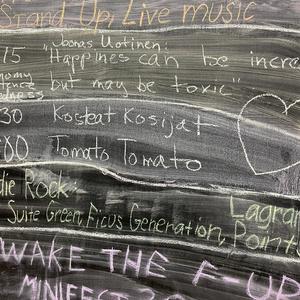 Stand Up, Live music
15 "Joonas Uotinen:
Happines can be incre
but may be toxic"
30 Kosteat Kosijat
:00 Tomato Tomato
die Rock:
Suite Green, Ficus Generation, Lagran
Point
WAKE THE F- UP
MINIFEST